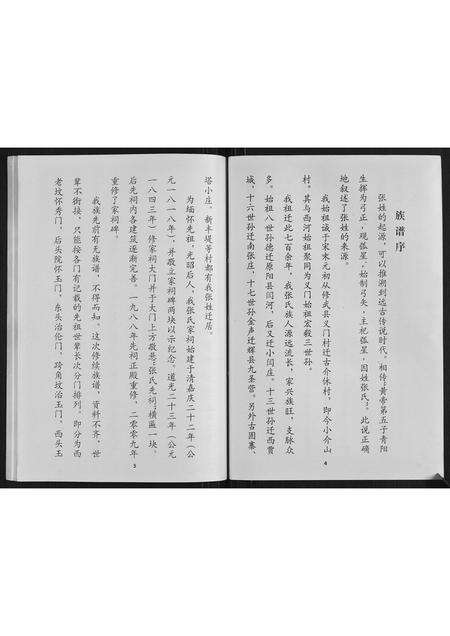 族谱序
张姓的起源，可以推溯到远古传说时代。相传：黄帝第五子青阳
生挥为弓正，观弧星，始制弓矢，主祀弧星，因姓张氏。此说正确
地叙述了张姓的来源。
我始祖诚于宋末元初从修武县义门村迁古介休村，即今小介山
村。其与西河始祖聚同为义门始祖宏毅三世孙。
我祖迁此七百余年，我张氏族人源远流长，家兴族旺，支脉众
多。始祖八世孙德迁原阳县闫河，后又迁小闫庄。十三世孙迁西贾
城，十六世孙迁南张庄，十七世孙金声迁辉县九圣营。另外古固寨、
4
塔小庄、新丰堤等村都有我张姓迁居。
为缅怀先祖，光昭后人，我张氏家祠始建于清嘉庆二十二年（公
元一八一八年），并敬立家祠碑两块以示纪念。道光二十三年（公元
一八四三年）修家祠大门并于大门上方敬悬“张氏先祠”横匾一块。
后先祠内各建筑逐渐完善。一九八八年先祠正殿重修，二零零九年
重修了家祠碑。
我族先前有无族谱，不得而知。这次修续族谱，资料不齐，世
辈不衔接，只能按各门有记载的先祖世辈长次分门排列。即分为西
老坟怀秀门、后头院怀玉门、东头治伦门、跨角坟治玉门、西头王
5